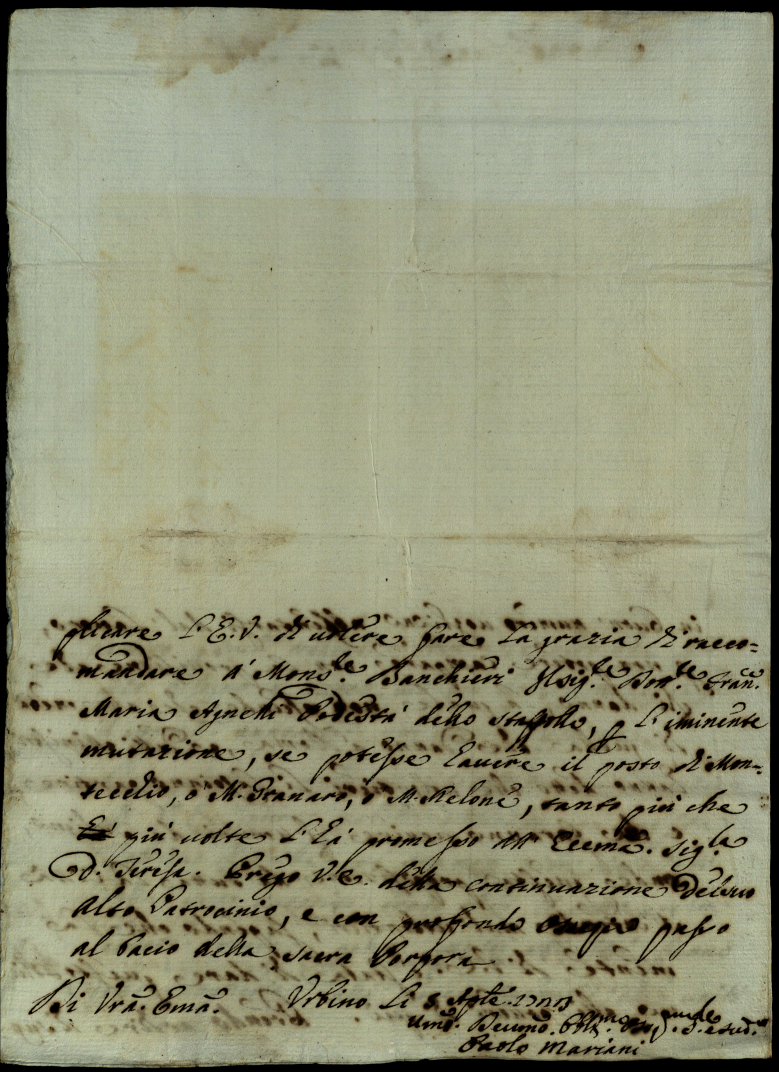 plicare L'E. V. di volere fare la grazia di racco=
mandare à Mons.re Banchieri il sig.re Bon.re Fran.
Maria Agnelli Podestà dello staffolo, p L'iminente
mutazione, se potesse havere il posto di Mon-
tecchio, ò M. Granaro, ò M. Melone, tanto più che
più volte L'hà promesso all' Eccma. Sig.la
D. Teresa. Prego V. E. della continuazione del suo
alto Patrocinio, e con profondo ossequio passo
al bacio della sacra Porpora
Di Vrã. Emã. Urbino Li 8
Umo. Devmo. Obb.mo
Paolo Mariani